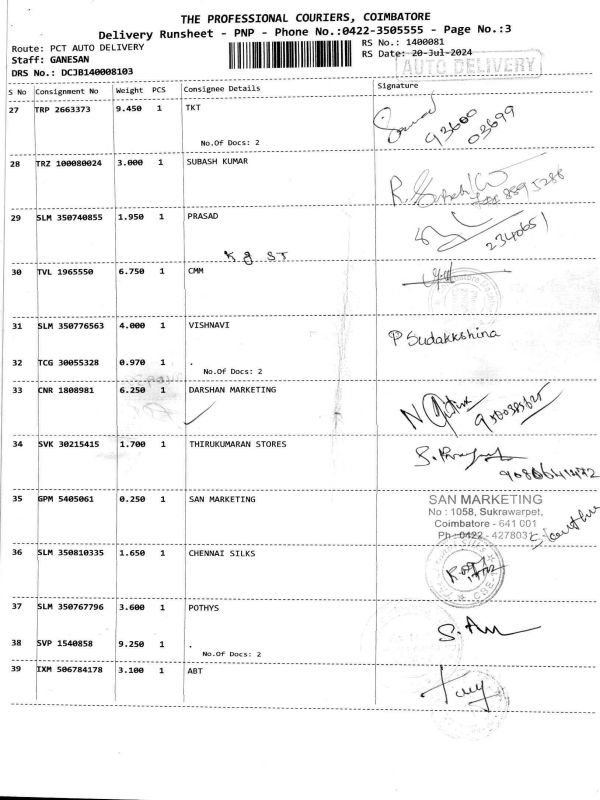 THE PROFESSIONAL COURIERS, COIMBATORE
Delivery Runsheet - PNP - Phone No.:0422-3505555 - Page No.:3
Route: PCT AUTO DELIVERY
RS No.: 1400081
Staff: GANESAN
RS Date: 20-Jul-2024
AUTO DELIVERY
DRS No.: DCJB140008103
S No Consignment No Weight PCS Consignee Details Signature
27 TRP 2663373 9.450 1 TKT
93600
03699
No.Of Docs: 2
28 TRZ 100080024 3.000 1 SUBASH KUMAR
29 SLM 350740855 1.950 1 PRASAD
2340651
K g ST
30 TVL 1965550 6.750 1 CMM
31 SLM 350776563 4.000 1 VISHNAVI
P Sudakkshina
32 TCG 30055328 0.970 1 .
No.Of Docs: 2
33 CNR 1808981 6.250 1 DARSHAN MARKETING
34 SVK 30215415 1.700 1 THIRUKUMARAN STORES
35 GPM 5405061 0.250 1 SAN MARKETING
SAN MARKETING
No : 1058, Sukrawarpet,
Coimbatore - 641 001
Ph : 0422 - 4278031
36 SLM 350810335 1.650 1 CHENNAI SILKS
37 SLM 350767796 3.600 1 POTHYS
38 SVP 1540858 9.250 1 .
No.Of Docs: 2
39 IXM 506784178 3.100 1 ABT